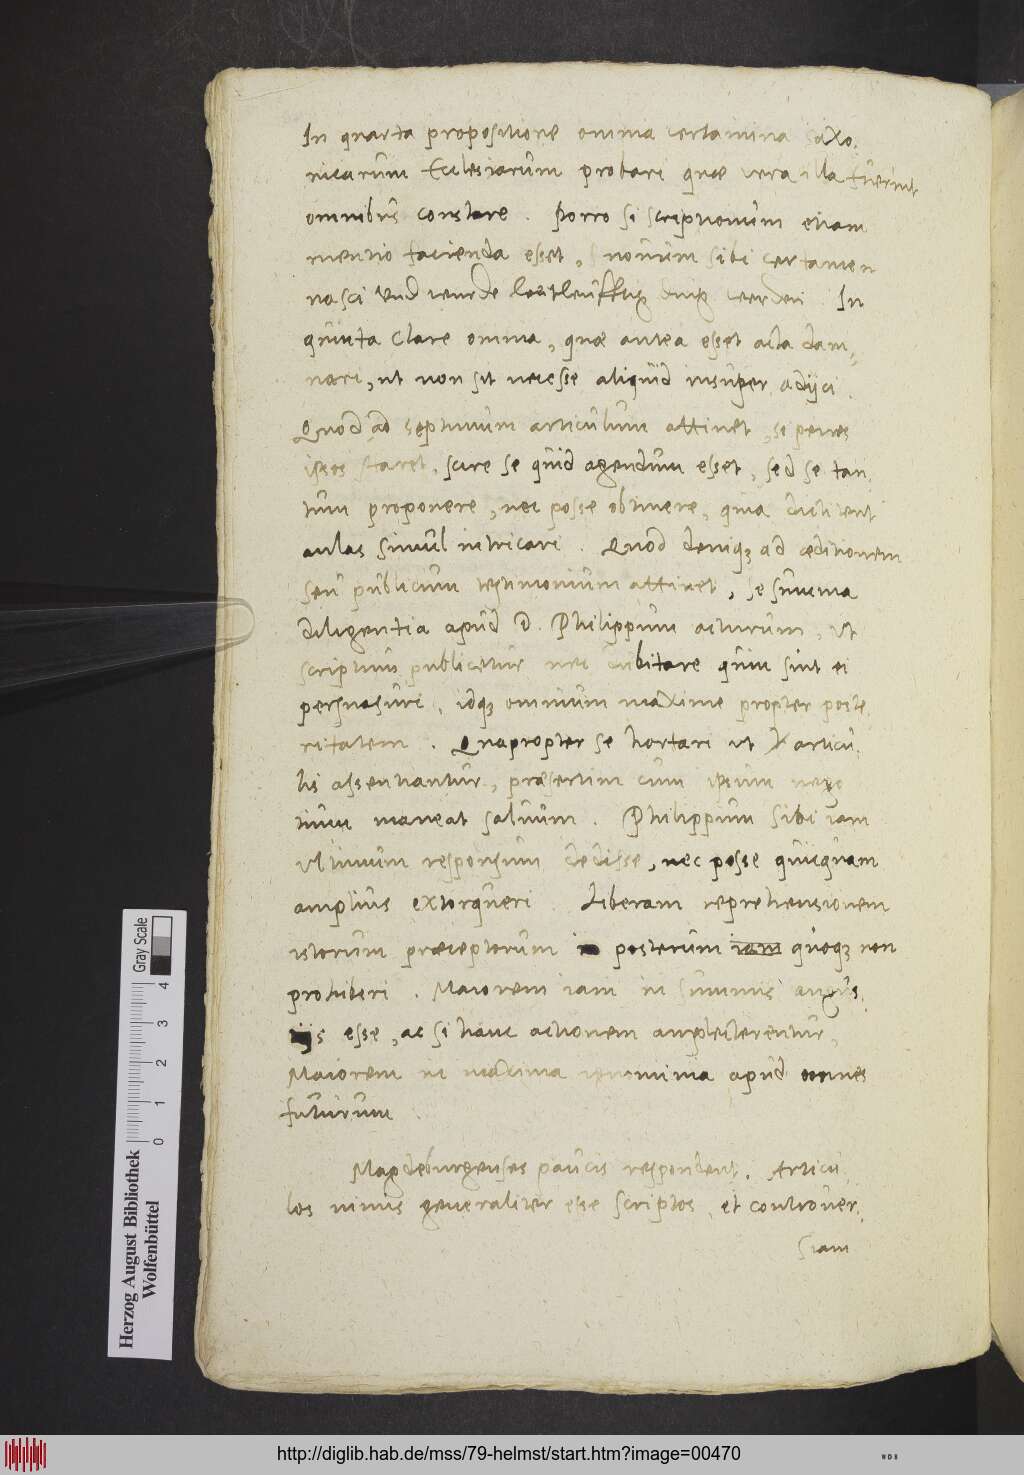 In quarta propositione omnia certamina Saxo,
nicarum Ecclesiarum probari quae vera illa fuerint
omnibus constare. Porro si scriptionum etiam
mentio facienda esset, novum sibi certamen
nasci Vnd wurde weitleuffig ding werden. In
quinta clare omnia, quae antea esset acta dam=
nari, ut non sit necesse aliquid insuper adijci.
Quod ad septimum articulum attinet, si penes
ipsos staret, scire se quid agendum esset, sed se tan,
tum proponere, nec posse obtinere, quia dictitent
aulas simul intricari. Quod deniqꝫ ad aeditionem
seu publicum testimonium attinet, se summa
diligentia apud D. Philippum acturum, ut
scriptum publicetur nec dubitare quin sint ei
persuasuri, idqꝫ omnium maxime propter poste,
ritatem. Quapropter se hortari ut articu,
lis assentiantur, praesertim cum ipsum nego
tium maneat salvum. Philippum sibi iam
ultimum responsum dedisse, nec posse quicquam
amplius extorqueri. Liberam reprehensionem
istorum praeceptorum in posterum iam quoqꝫ non
prohiberi. Maiorem iam in summis angus,
tijs esse, ac si hanc actionem amplecterentur,
Maiorem in maxima ignominia apud omnes
futurum.
Magdeburgenses paucis respondent. Articu,
los nimis generaliter esse scriptos, et controver,
siam
Gray Scale
0 1 2 3 4
Herzog August Bibliothek
Wolfenbüttel
http://diglib.hab.de/mss/79-helmst/start.htm?image=00470
WDB